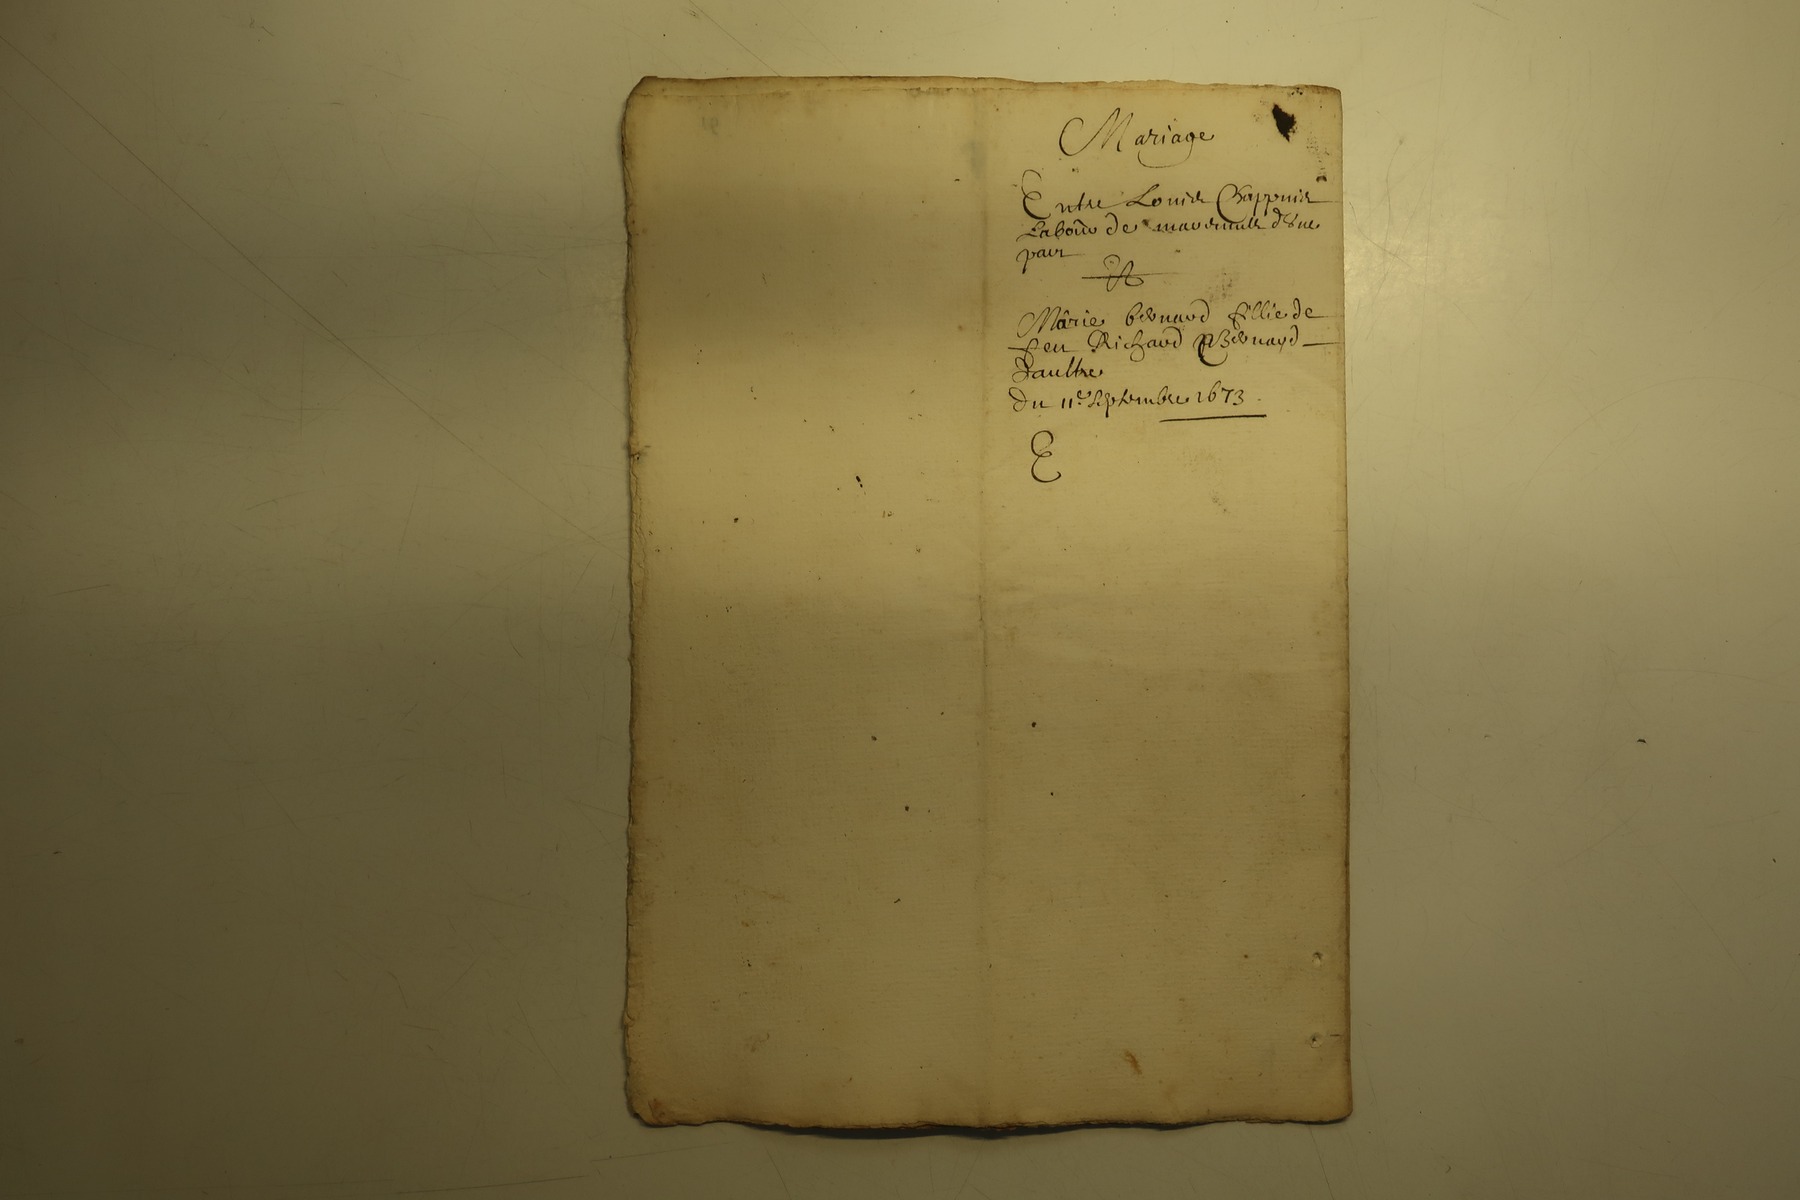 Mariage
Entre Louis Chappuis
Labour de d'Une
part
Et
Marie bernard fillie de
feu Richard Bernard
D'aultre
Du 11e Septembre 1673
E